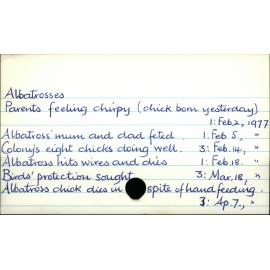 Albatrosses
Parents feeling chirpy (chick born yesterday)
1: Feb. 2, 1977
Albatross' mum and dad feted. 1: Feb 5, "
Colony's eight chicks doing well. 3: Feb. 14, "
Albatross hits wires and dies 1: Feb. 18. "
Birds' protection sought 3: Mar. 18, "
Albatross chick dies in spite of hand feeding.
3: Ap. 7, "